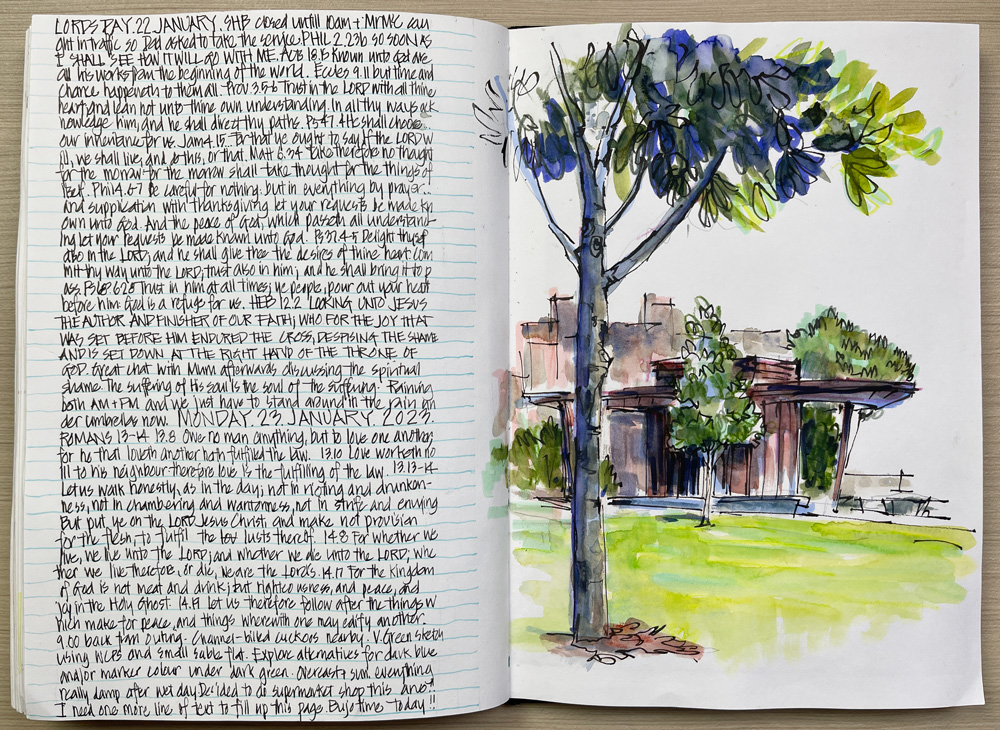 LORDS DAY. 22 JANUARY. SHB closed untill 10am + MrMcC cau
ght in traffic so Dad asked to take the service. PHIL 2.23b SO SOON AS
I SHALL SEE HOW IT WILL GO WITH ME. Acts 15.18 Known unto God are
all his works from the beginning of the world. Eccles 9.11 but time and
chance happeneth to them all. Prov 3.5-6 Trust in the LORD with all thine
heart, and lean not unto thine own understanding. In all thy ways ack
nowledge him, and he shall direct thy paths. Ps 47.4 He shall choose
our inheritance for us. Jam 4.15 For that ye ought to say, If the LORD w
ill, we shall live, and do this, or that. Matt 6.34 Take therefore no thought
for the morrow: for the morrow shall take thought for the things of
itself. Phil 4.6-7 Be careful for nothing: but in everything by prayer..
and supplication with thanksgiving let your requests be made kn
own unto God. And the peace of God, which passeth all understand-
ing let your requests be made known unto God. Ps 37.4-5 Delight thyself
also in the LORD; and he shall give thee the desires of thine heart. Com
mit thy way unto the LORD; trust also in him; and he shall bring it to p
ass. Ps 62.8 Trust in him at all times; ye people, pour out your heart
before him: God is a refuge for us. HEB 12.2 LOOKING UNTO JESUS
THE AUTHOR AND FINISHER OF OUR FAITH; WHO FOR THE JOY THAT
WAS SET BEFORE HIM ENDURED THE CROSS, DESPISING THE SHAME
AND IS SET DOWN AT THE RIGHT HAND OF THE THRONE OF
GOD. Great chat with Mum afterwards discussing the spiritual
shame. The suffering of His soul is the soul of the suffering. Raining
both AM + PM and we just have to stand around in the rain un
der umbrellas now. MONDAY. 23. JANUARY. 2023.
ROMANS 13-14 13.8 Owe no man anything, but to love one another
for he that loveth another hath fulfilled the law. 13.10 Love worketh no
ill to his neighbour: therefore love is the fulfilling of the law. 13.13-14
Let us walk honestly, as in the day; not in rioting and drunken-
ness, not in chambering and wantonness, not in strife and envying
But put ye on the LORD Jesus Christ, and make not provision
for the flesh, to fulfil the lusts thereof. 14.8 For whether we
live, we live unto the LORD; and whether we die unto the LORD, whe
ther we live therefore, or die, we are the Lord's. 14.17 For the kingdom
of God is not meat and drink; but righteousness, and peace, and
joy in the Holy Ghost. 14.19 Let us therefore follow after the things w
hich make for peace, and things wherewith one may edify another.
9.00 back from outing. Channel-billed cuckoos nearby. V. Green sketch
using WCPS and small sable flat. Explore alternatives for dark blue
and/or marker colour under dark green. Overcast + sun. everything
really damp after wet day. Decided to do supermarket shop this arvo!!
I need one more line of text to fill up this page. Bujo time today!!